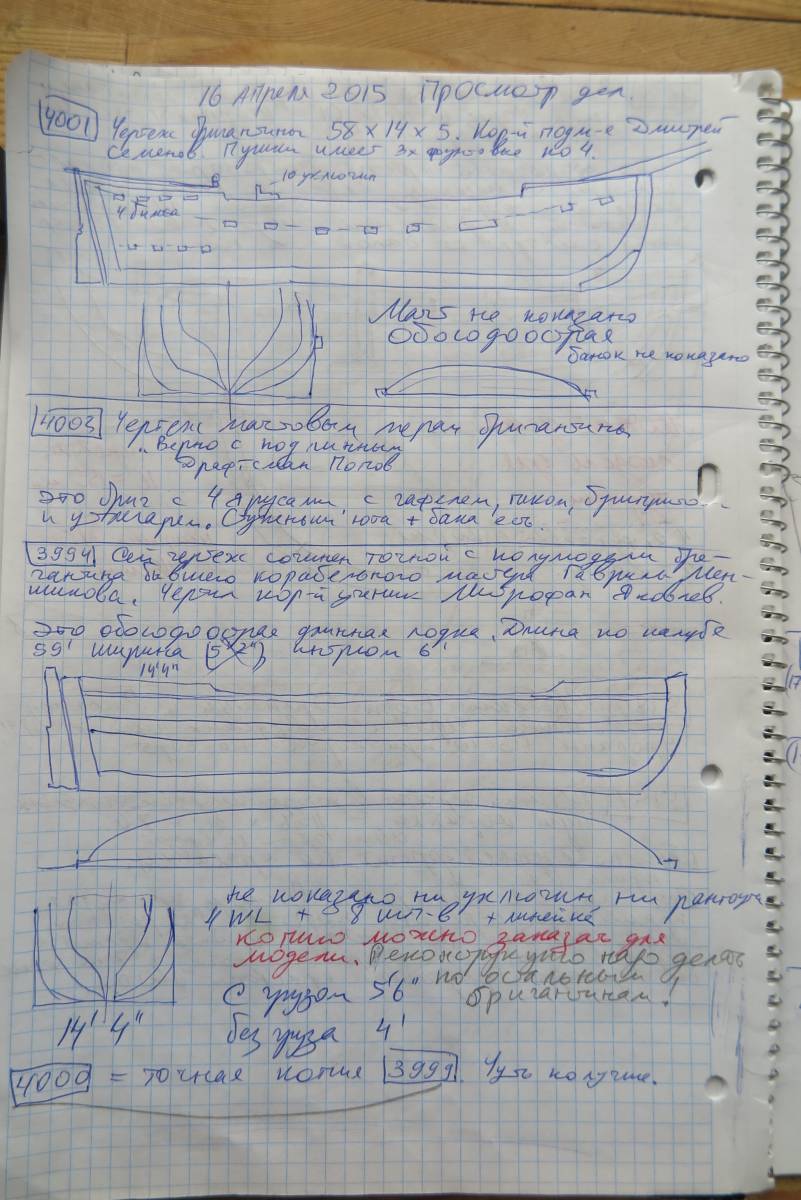 16 Апреля 2015 Просмотр дел.
4001 Чертеж бригантины 58 x 14 x 5. Кор-й подм-е Дмитрей
Семенов. Пушки имеет 3х фунтовые но 4.
10 уключин
4 бимса
Мачт не показано
Обоюдоострая
банок не показано
4003 Чертеж мачтовым бригантины
"Верно с подлинным
Драфтсман Попов
Это бриг с 4 ярусами, с гафелем, гиком,
и утлегарем. юта + бака есть.
3994 Сей чертеж сочинен точной с полумодели бре-
гантина бывшего корабельного мастера Гаврилы Мен-
шикова. Чертил кор-й ученик Митрофан Яковлев.
Это обоюдоострая длинная лодка. Длина по палубе
59' ширина (5' 2"), интрюм 6'
14' 4"
не показано ни уключин ни рангоута
4 WL + 8 шп-в + линейка
копию можно заказать для
модели. Реконструкцию надо делать
по остальным
бригантинам!
С грузом 5'6"
без груза 4'
14' 4"
4000 = точная копия 3999. Чуть получше.